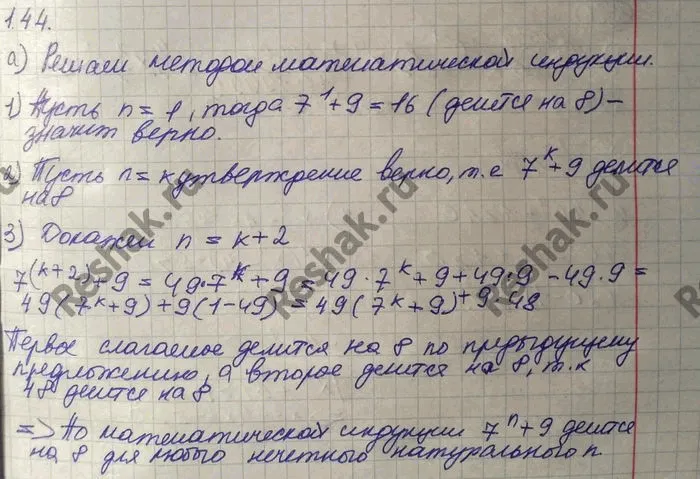 1.44.
а) Решаем методом математической индукции.
1) Пусть n = 1, тогда 7^1 + 9 = 16 (делится на 8) –
значит верно.
2) Пусть n = к утверждение верно, т.е 7^к + 9 делится
на 8
3) Докажем n = к + 2
7^(к+2) + 9 = 49·7^к + 9 = 49·7^к + 9 + 49·9 - 49·9 =
49(7^к + 9) + 9(1-49) = 49(7^к + 9) + 9·48
Первое слагаемое делится на 8 по предыдущему
предложению, а второе делится на 8, т.к
48 делится на 8
=> По математической индукции 7^n + 9 делится
на 8 для любого нечетного натурального n.
Reshak.ru
Reshak.ru
Reshak.ru
Reshak.ru
Reshak.ru